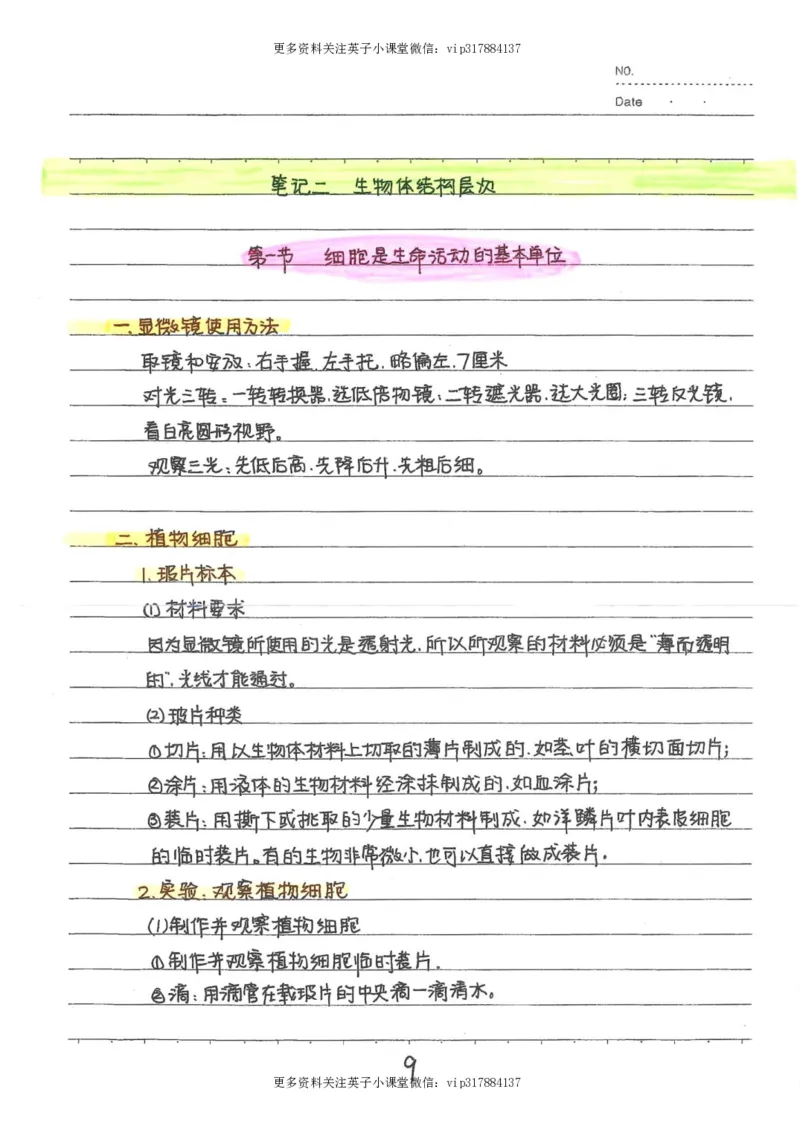 更多资料关注英子小课堂微信：vip317884137
NO.
Date
笔记二 生物体结构层次
第一节 细胞是生命活动的基本单位
一.显微镜使用方法
取镜和安放：右手握.左手托.略偏左.7厘米
对光三转：一转转换器.选低倍物镜；二转遮光器.选大光圈；三转反光镜.
看白亮圆形视野。
观察三光：先低后高.先降后升.先粗后细。
二.植物细胞
1.玻片标本
(1)材料要求
因为显微镜所使用的光是透射光.所以所观察的材料必须是“薄而透明
的”.光线才能通过。
(2)玻片种类
①切片：用以生物体材料上切取的薄片制成的.如蒸叶的横切面切片；
②涂片：用液体的生物材料经涂抹制成的.如血涂片；
③装片：用撕下或挑取的少量生物材料制成.如洋鳞片叶内表皮细胞
的临时装片。有的生物非常微小.也可以直接做成装片.
2.实验：观察植物细胞
(1)制作并观察植物细胞
①制作并观察植物细胞临时装片.
②滴：用滴管在载玻片的中央滴一滴清水。
9
更多资料关注英子小课堂微信：vip317884137